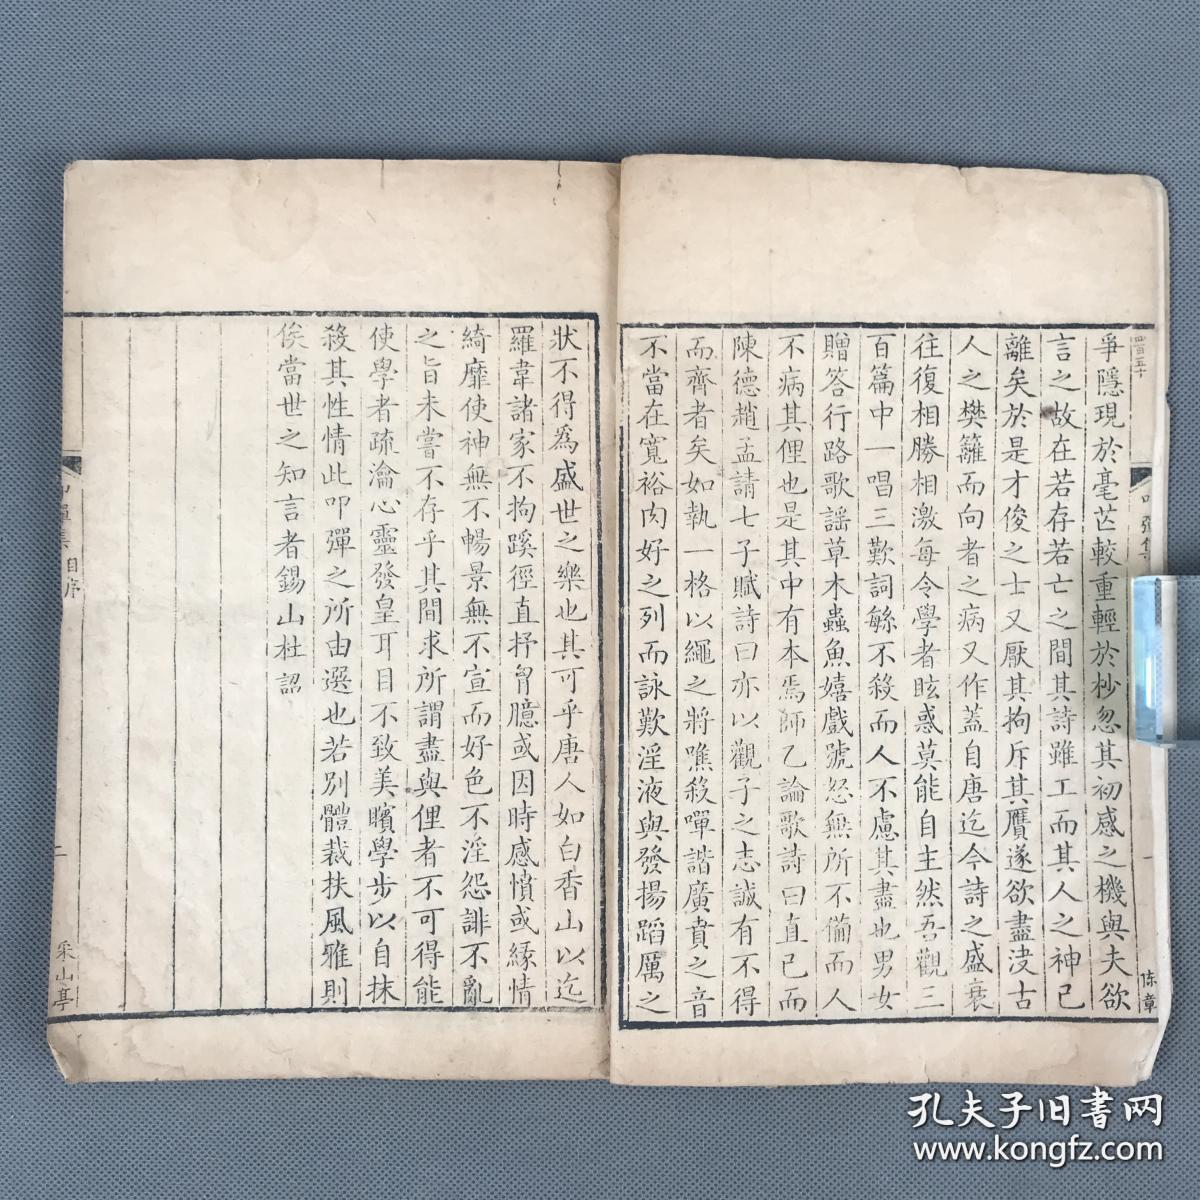 爭隱現於毫芒較重輕於杪忽其初感之機與夫欲
言之故在若存若亡之間其詩雖工而其人之神已
離矣於是才俊之士又厭其拘斥其贋遂欲盡浸古
人之樊籬而向者之病又作蓋自唐迄今詩之盛衰
往復相勝相激每令學者眩惑莫能自主然吾觀三
百篇中一唱三歎詞緐不殺而人不慮其盡也男女
贈答行路歌謡草木蟲魚嬉戲號怒無所不備而人
不病其俚也是其中有本焉師乙論歌詩曰直己而
陳德趙孟請七子賦詩曰亦以觀子之志誠有不得
而齊者矣如執一格以繩之將噍殺嘽諧廣賁之音
不當在寬裕肉好之列而詠歎淫液與發揚蹈厲之
四百五十
陈章
狀不得爲盛世之樂也其可乎唐人如白香山以迄
羅韋諸家不拘蹊徑直抒胷臆或因時感憤或緣情
綺靡使神無不暢景無不宣而好色不淫怨誹不亂
之旨未嘗不存乎其間求所謂盡與俚者不可得能
使學者疏瀹心靈發皇耳目不致美矉學步以自抹
殺其性情此叩彈之所由選也若別體裁扶風雅則
俟當世之知言者錫山杜詔
自序
二
采山亭
孔夫子旧书网
www.kongfz.com